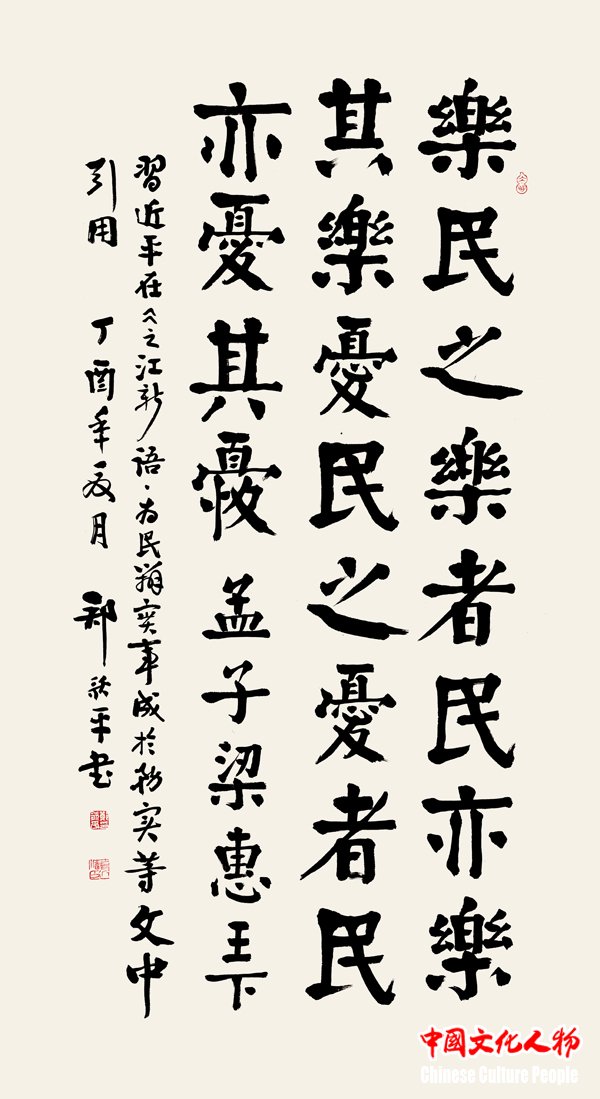 樂民之樂者民亦樂
其樂憂民之憂者民
亦憂其憂孟子梁惠王下
習近平在《之江新語·为民辦实事成於務实等文中
引用 丁酉年夏月 鄭 平書
中國文化人物
Chinese Culture People